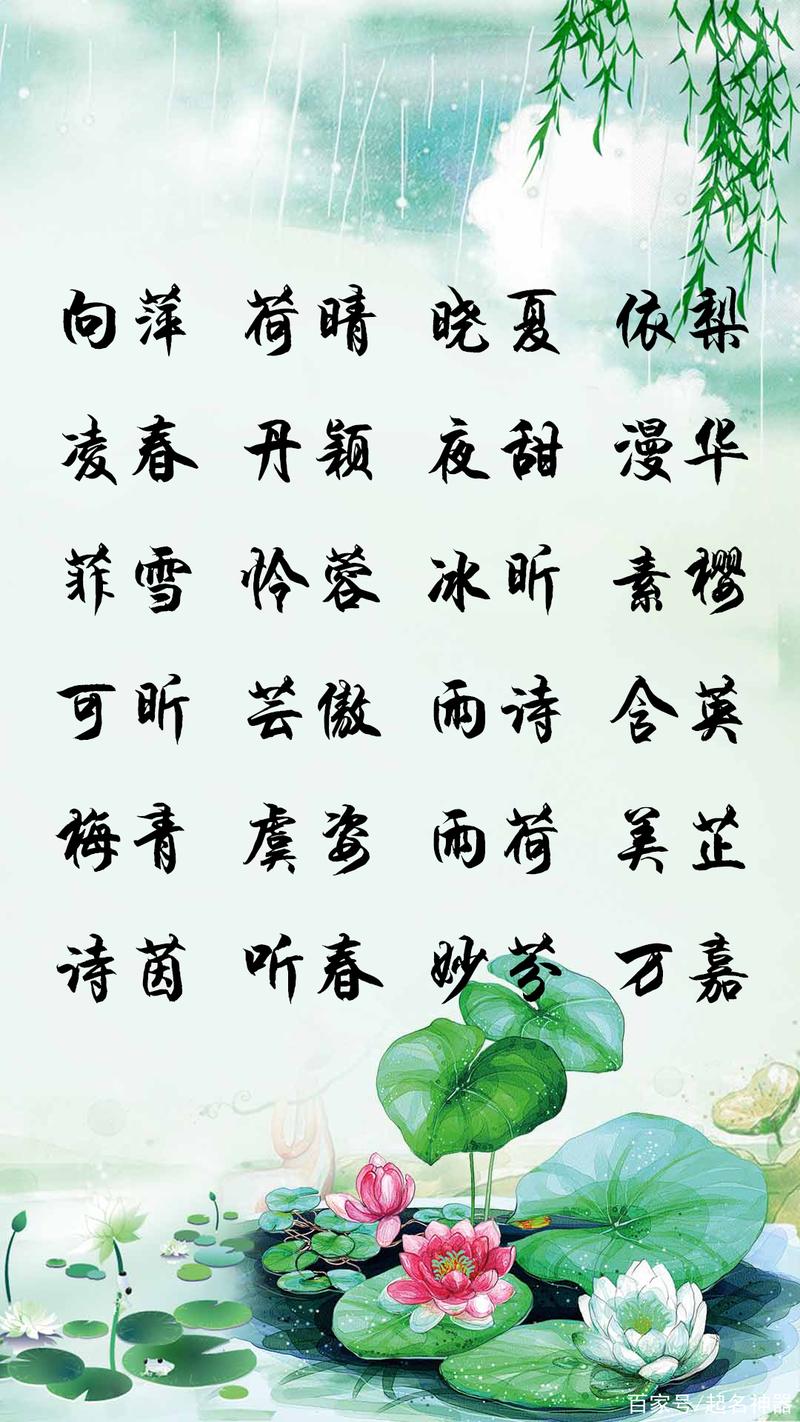 向萍 荷晴 晓夏 依梨
凌春 丹颖 夜甜 漫华
菲雪 怜蓉 冰昕 素樱
可昕 芸傲 雨诗 含英
梅青 虞姿 雨荷 美芷
诗茵 听春 妙芬 万嘉
百家号/起名神器